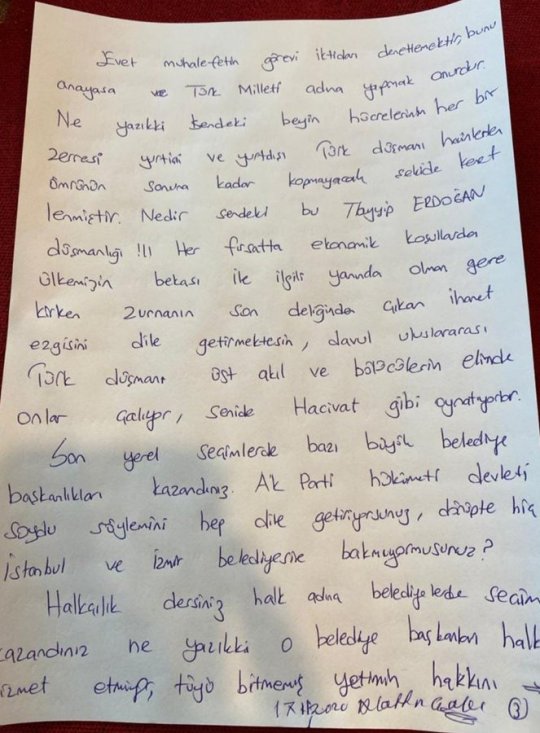 Evet muhalefetin görevi iktidarı denetlemektir, bunu
anayasa ve Türk Milleti adına yapmak onurdur.
Ne yazıkki sendeki beyin hücrelerinin her bir
zerresi yurtiçi ve yurtdışı Türk düşmanı hainlerden
ömrünün sonuna kadar kopmayacak şekilde kenet
lenmiştir. Nedir sendeki bu Tayyip ERDOĞAN
düşmanlığı !!! Her fırsatta ekonomik koşullarda
ülkemizin bekası ile ilgili yanında olman gere
kirken zurnanın son deliğinden çıkan ihanet
ezgisini dile getirmektesin, davul uluslararası
Türk düşmanı üst akıl ve bölücülerin elinde
onlar çalıyor, senide Hacivat gibi oynatıyorlar.
Son yerel seçimlerde bazı büyük belediye
başkanlıkları kazandınız. AK Parti hükümeti devleti
soydu söylemini hep dile getiriyorsunuz, dönüpte hiç
İstanbul ve İzmir belediyesine bakmıyormusunuz?
Halkçılık dersiniz halk adına belediyelerde seçim
kazandınız ne yazıkki o belediye başkanları halk
izmet etmiyor, tüyü bitmemiş yetimin hakkını
2020 Alattin 3